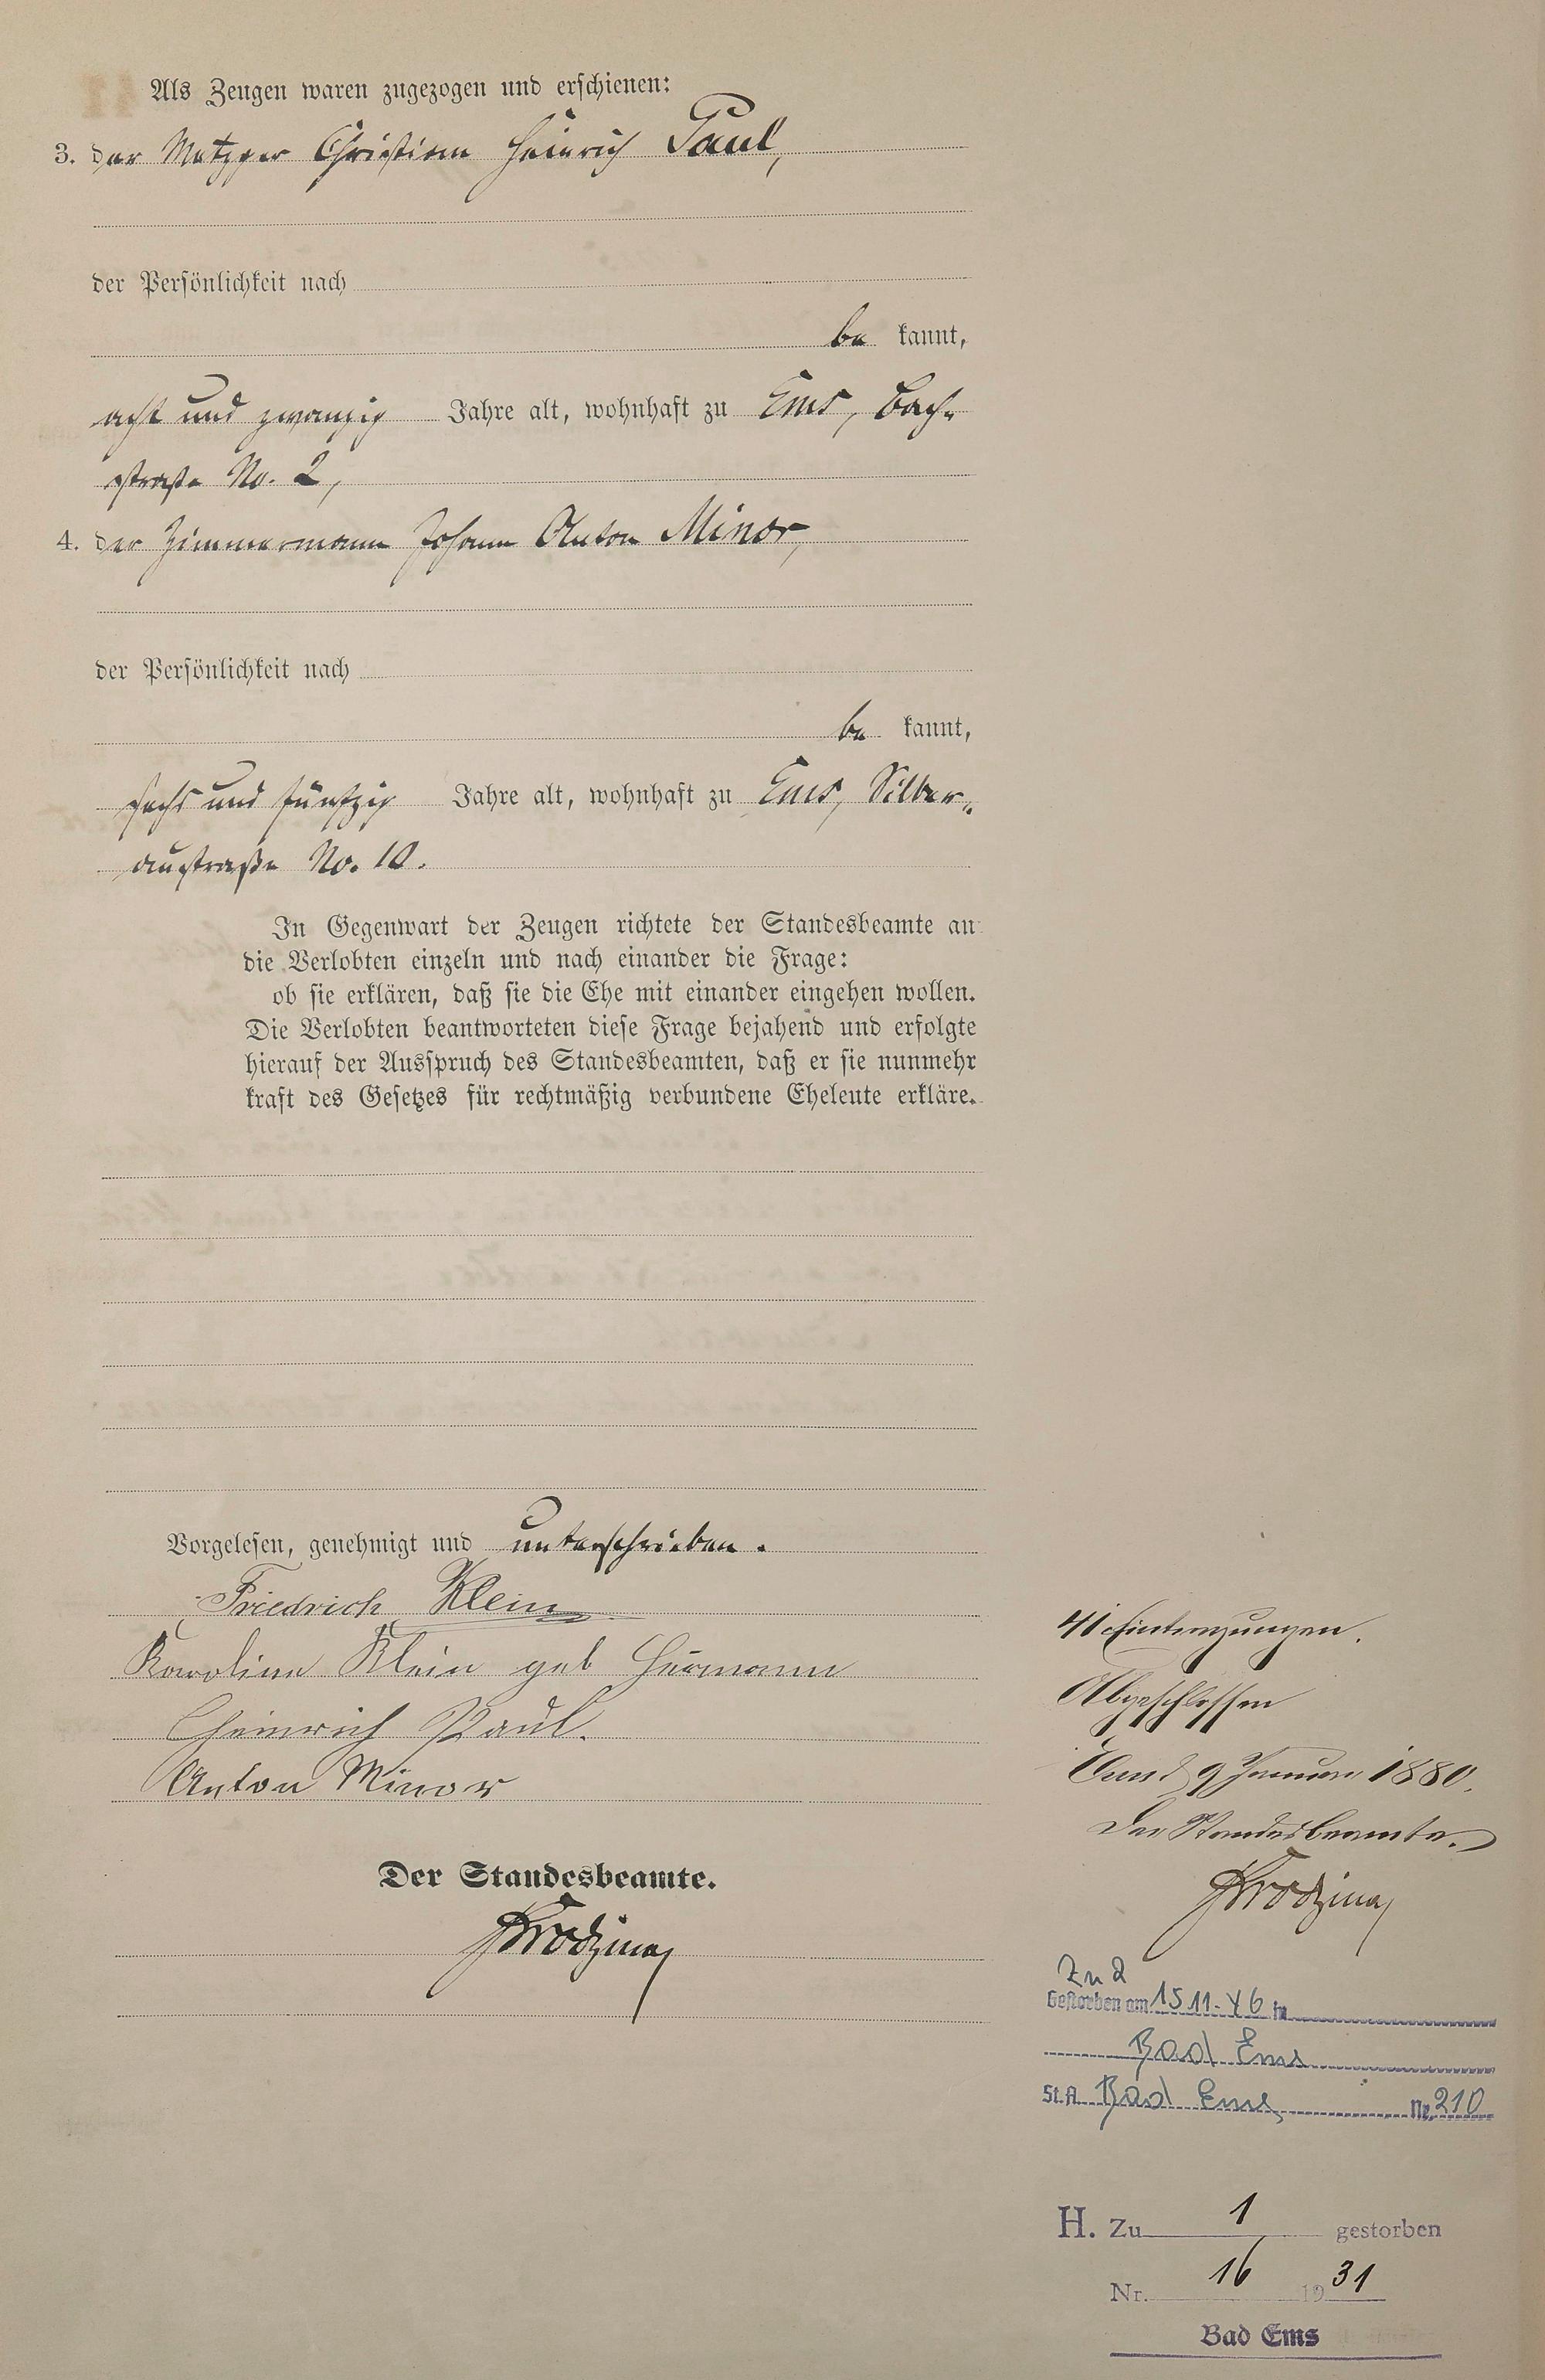 Als Zeugen waren zugezogen und erschienen:
3. der Metzger Christian Heinrich Paul,
der Persönlichkeit nach
be kannt,
acht und zwanzig Jahre alt, wohnhaft zu Ems, Bach-
straße No. 2,
4. der Zimmermann Johann Anton Minor,
der Persönlichkeit nach
be kannt,
sechs und fünfzig Jahre alt, wohnhaft zu Ems, Silber-
austraße No. 10.
In Gegenwart der Zeugen richtete der Standesbeamte an
die Verlobten einzeln und nach einander die Frage:
ob sie erklären, daß sie die Ehe mit einander eingehen wollen.
Die Verlobten beantworteten diese Frage bejahend und erfolgte
hierauf der Ausspruch des Standesbeamten, daß er sie nunmehr
kraft des Gesetzes für rechtmäßig verbundene Eheleute erkläre.
Vorgelesen, genehmigt und unterschrieben.
Friedrich Klein
Karoline Klein geb Hermann
Heinrich Paul.
Anton Minor
Der Standesbeamte.
41 Eintragungen.
Abgeschlossen
Ems d 9 Januar 1880.
Der Standesbeamte.
Zu 2
Gestorben am 15.11.46 in
Bad Ems
St.A. Bad Ems Nr. 210
H. Zu 1 gestorben
Nr. 16 1931
Bad Ems